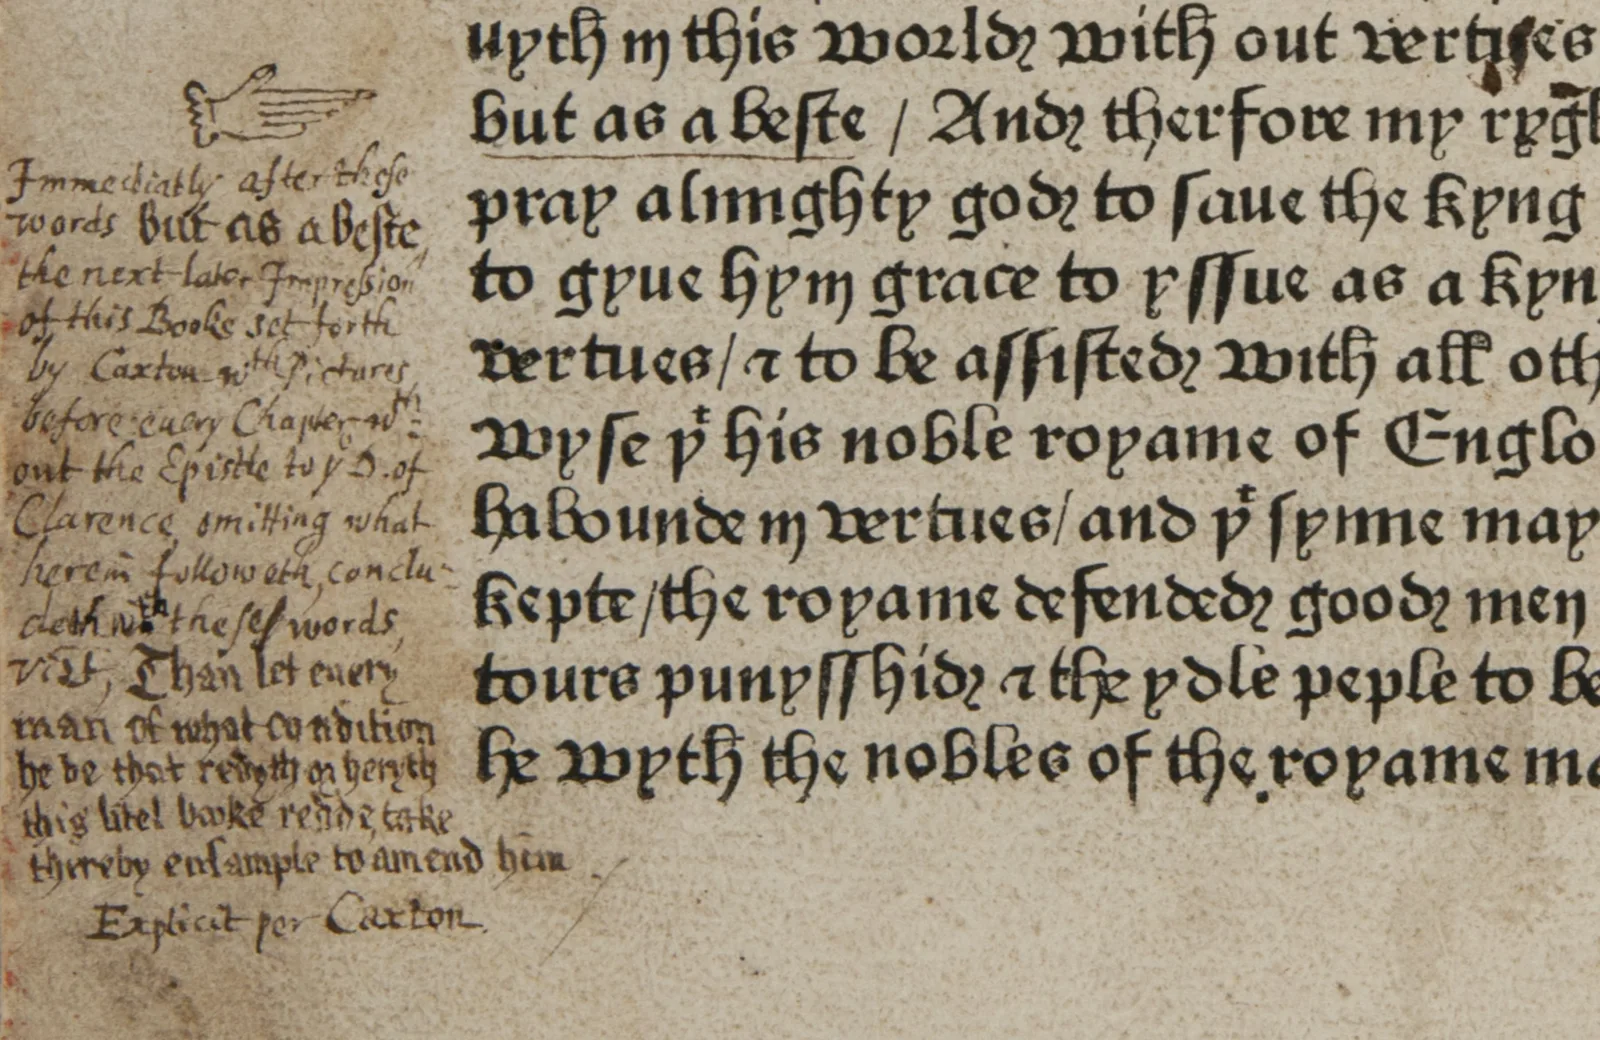 uyth in this world with out vertues
but as a beste / And therfore my rygh
pray almighty god to saue the kyng
to gyue hym grace to yssue as a kyn
vertues / ⁊ to be assisted with all oth
wyse yͭ his noble royame of Englo
habounde in vertues / and yͭ synne may
kepte / the royame defended good men
tours punysshid ⁊ the ydle peple to be
he wyth the nobles of the royame ma
Immediatly after these
words but as a beste,
the next later Impression
of this Booke set forth
by Caxton wᵗʰ Pictures
before euery Chapter wᵗʰ-
out the Epistle to yᵉ D. of
Clarence, omitting what
herein followeth, conclu-
deth wᵗʰ these words,
vizt, Than let euery
man of what condition
he be that redyth or heryth
this litel booke redde, take
thereby ensample to amend him
Explicit per Caxton.